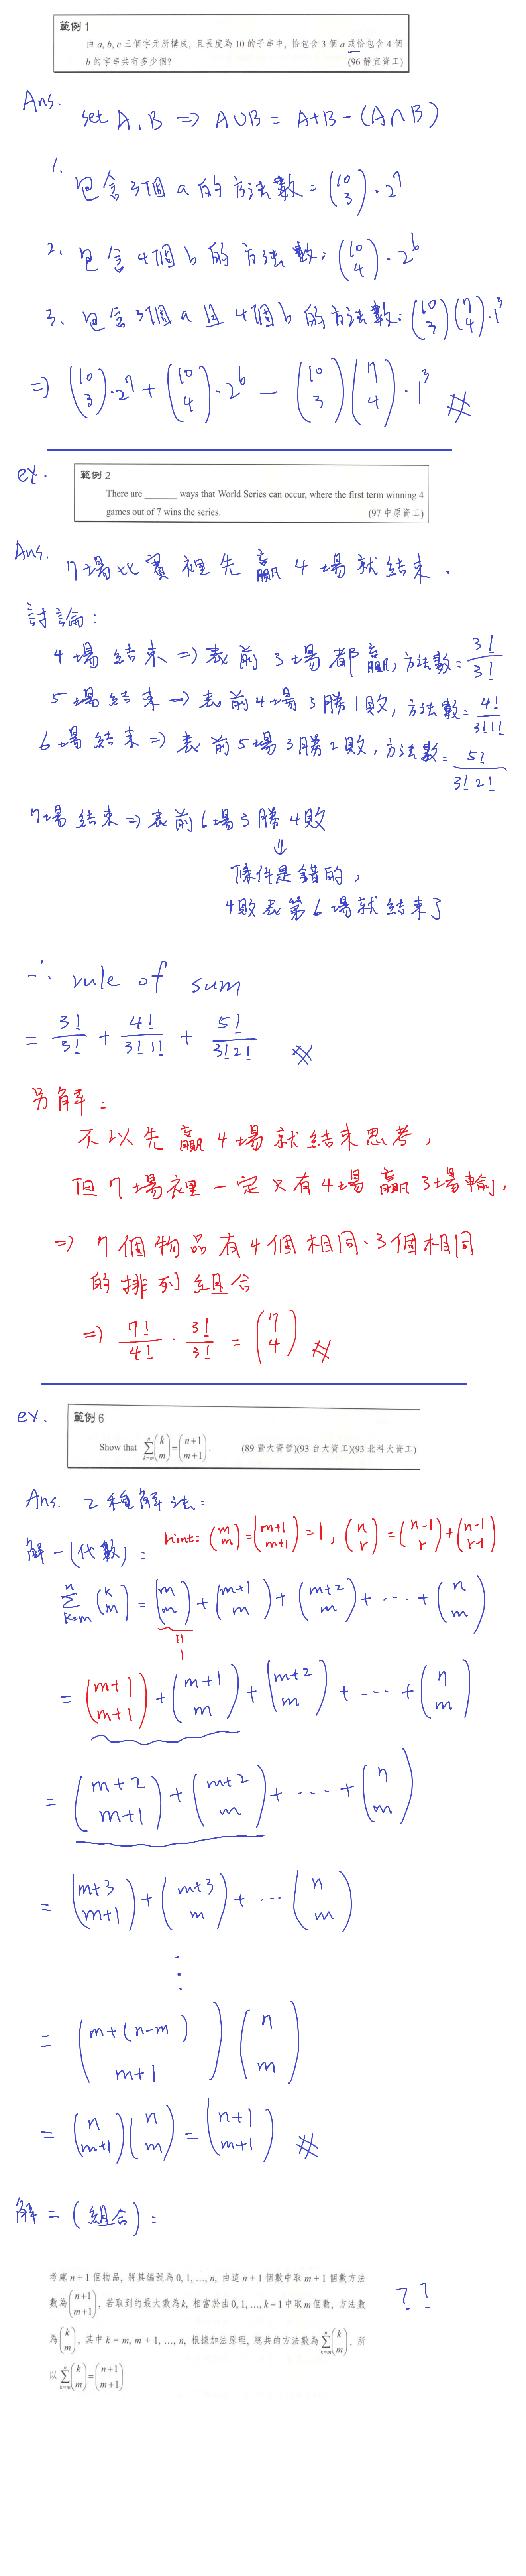 範例 1
由 a, b, c 三個字元所構成, 且長度為 10 的子串中, 恰包含 3 個 a 或恰包含 4 個
b 的字串共有多少個? (96 靜宜資工)
Ans.
set A, B ⇒ A∪B = A+B-(A∩B)
1. 包含3個 a 的方法數 = (10 3)·2^7
2. 包含4個 b 的方法數: (10 4)·2^6
3. 包含3個 a 且 4個 b 的方法數: (10 3)(7 4)·1^3
⇒ (10 3)·2^7 + (10 4)·2^6 - (10 3)(7 4)·1^3 #
ex.
範例 2
There are ______ ways that World Series can occur, where the first term winning 4
games out of 7 wins the series. (97 中原資工)
Ans. 7場比賽裡先贏4場就結束.
討論:
4場結束 ⇒ 表前3場都贏, 方法數 = 3!/3!
5場結束 ⇒ 表前4場3勝1敗, 方法數 = 4!/3!1!
6場結束 ⇒ 表前5場3勝2敗, 方法數 = 5!/3!2!
7場結束 ⇒ 表前6場3勝4敗
⇓
條件是錯的,
4敗表第6場就結束了
∴ rule of sum
= 3!/3! + 4!/3!1! + 5!/3!2! #
另解:
不以先贏4場就結束思考,
但7場裡一定只有4場贏3場輸,
⇒ 7個物品有4個相同、3個相同
的排列組合
⇒ 7!/4! · 3!/3! = (7 4) #
ex.
範例 6
Show that ∑_{k=m}^{n} (k m) = (n+1 m+1). (89 暨大資管)(93 台大資工)(93 北科大資工)
Ans. 2種解法:
hint: (m m) = (m+1 m+1) = 1, (n r) = (n-1 r) + (n-1 r-1)
解一(代數):
∑_{k=m}^{n} (k m) = (m m) + (m+1 m) + (m+2 m) + ⋯ + (n m)
=
1
= (m+1 m+1) + (m+1 m) + (m+2 m) + ⋯ + (n m)
= (m+2 m+1) + (m+2 m) + ⋯ + (n m)
= (m+3 m+1) + (m+3 m) + ⋯ (n m)
⋮
= (m+(n-m) m+1) (n m)
= (n m+1)(n m) = (n+1 m+1) #
解二(組合):
考慮 n + 1 個物品, 將其編號為 0, 1, …, n, 由這 n + 1 個數中取 m + 1 個數方法
數為 (n+1 m+1), 若取到的最大數為 k, 相當於由 0, 1, …, k – 1 中取 m 個數, 方法數
為 (k m), 其中 k = m, m + 1, …, n, 根據加法原理, 總共的方法數為 ∑_{k=m}^{n} (k m), 所
以 ∑_{k=m}^{n} (k m) = (n+1 m+1)
??